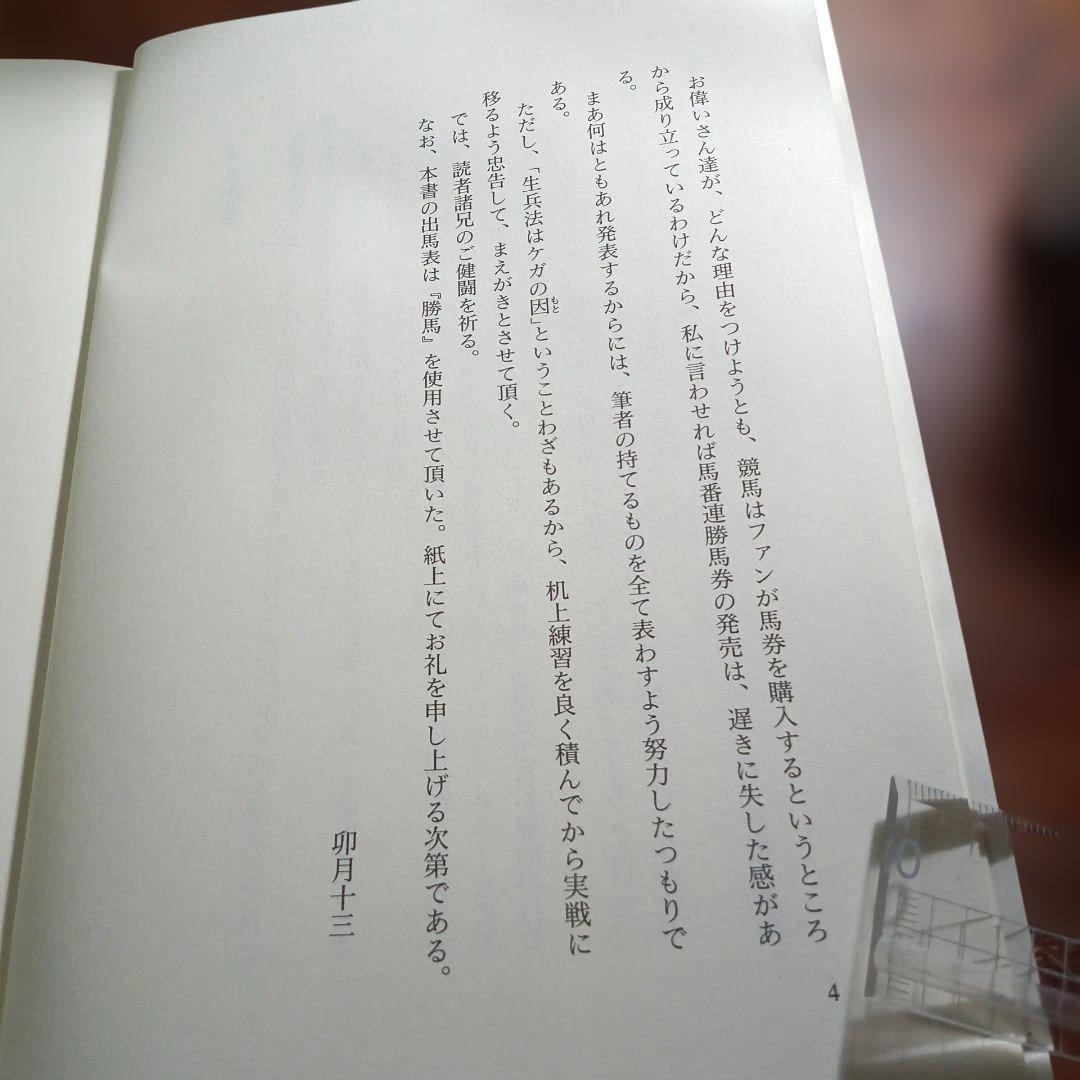 お偉いさん達が、どんな理由をつけようとも、競馬はファンが馬券を購入するというところ
から成り立っているわけだから、私に言わせれば馬番連勝馬券の発売は、遅きに失した感があ
る。
まあ何はともあれ発表するからには、筆者の持てるものを全て表わすよう努力したつもりで
ある。
ただし、「生兵法はケガの因」ということわざもあるから、机上練習を良く積んでから実戦に
もと
移るよう忠告して、まえがきとさせて頂く。
では、読者諸兄のご健闘を祈る。
なお、本書の出馬表は『勝馬』を使用させて頂いた。紙上にてお礼を申し上げる次第である。
卯月十三
4